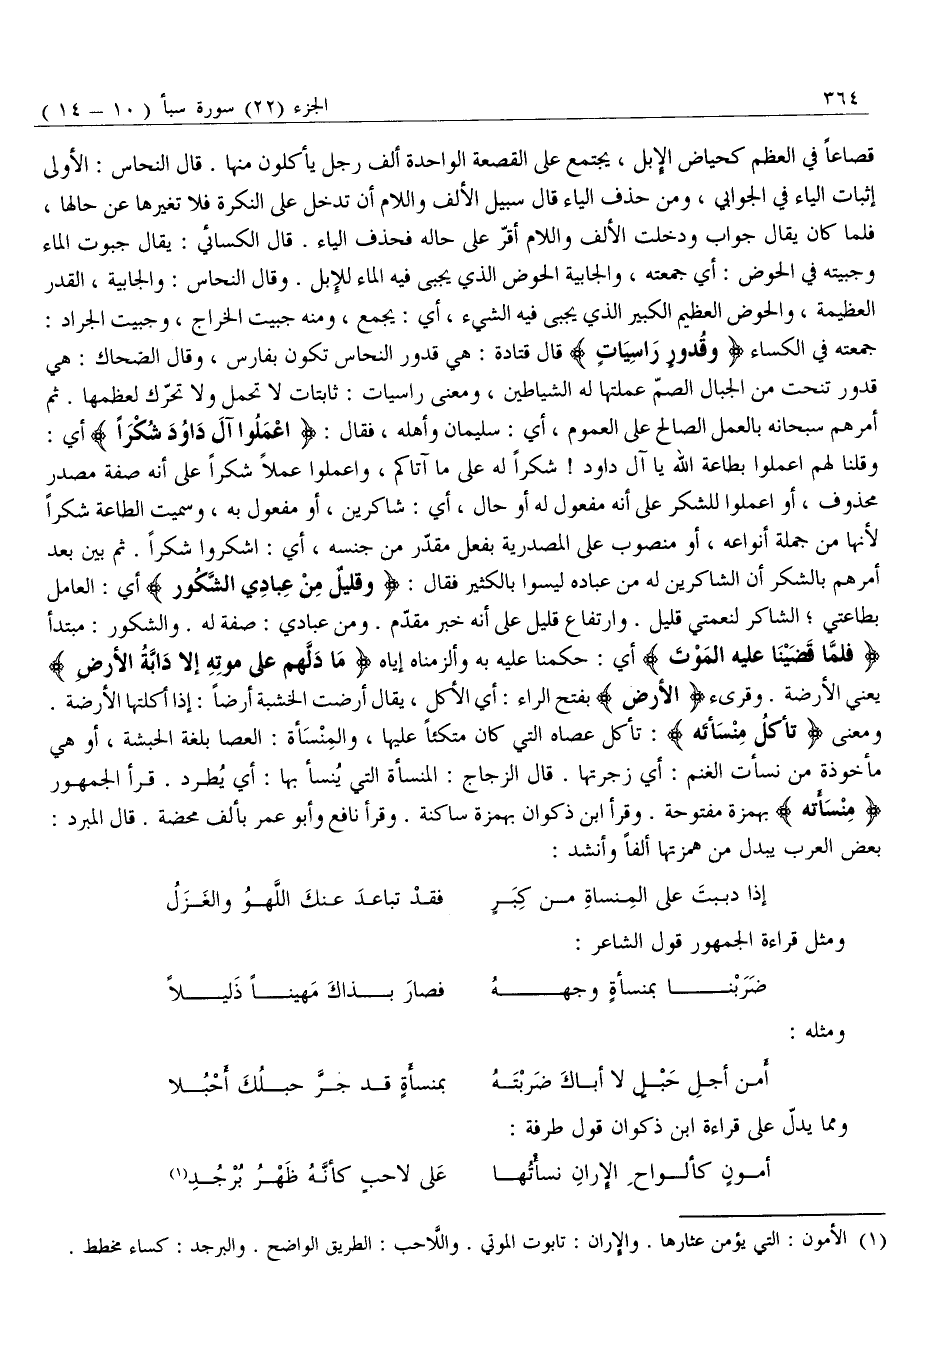 ٣٦٤
الجزء (٢٢) سورة سبأ ( ١٠ – ١٤ )
قصاعاً في العظم كحياض الإبل ، يجتمع على القصعة الواحدة ألف رجل يأكلون منها . قال النحاس : الأولى
إثبات الياء في الجوابي ، ومن حذف الياء قال سبيل الألف واللام أن تدخل على النكرة فلا تغيرها عن حالها ،
فلما كان يقال جواب ودخلت الألف واللام أقرّ على حاله فحذف الياء . قال الكسائي : يقال جبوت الماء
وجبيته في الحوض : أي جمعته ، والجابية الحوض الذي يجبى فيه الماء للإبل . وقال النحاس : والجابية ، القدر
العظيمة ، والحوض العظيم الكبير الذي يجبى فيه الشيء ، أي : يجمع ، ومنه جبيت الخراج ، وجبيت الجراد :
جمعته في الكساء ﴿ وقُدورٍ رَاسِيَاتٍ ﴾ قال قتادة : هي قدور النحاس تكون بفارس ، وقال الضحاك : هي
قدور تنحت من الجبال الصمّ عملتها له الشياطين ، ومعنى راسيات : ثابتات لا تحمل ولا تحرّك لعظمها . ثم
أمرهم سبحانه بالعمل الصالح على العموم ، أي : سليمان وأهله ، فقال : ﴿ اعْمَلُوا آلَ دَاوُدَ شُكْرَاً ﴾ أي :
وقلنا لهم اعملوا بطاعة الله يا آل داود ! شكراً له على ما آتاكم ، واعملوا عملاً شكراً على أنه صفة مصدر
محذوف ، أو اعملوا للشكر على أنه مفعول له أو حال ، أي : شاكرين ، أو مفعول به ، وسميت الطاعة شكراً
لأنها من جملة أنواعه ، أو منصوب على المصدرية بفعل مقدّر من جنسه ، أي : اشكروا شكراً . ثم بين بعد
أمرهم بالشكر أن الشاكرين له من عباده ليسوا بالكثير فقال : ﴿ وقليلٌ مِنْ عِبادِي الشَّكُور ﴾ أي : العامل
بطاعتي ؛ الشاكر لنعمتي قليل . وارتفاع قليل على أنه خبر مقدّم . ومن عبادي : صفة له . والشكور : مبتدأ
﴿ فلمَّا قَضَيْنَا عليه المَوْتَ ﴾ أي : حكمنا عليه به وألزمناه إياه ﴿ مَا دَلَّهم على موتِهِ إلا دَابَّةُ الأرضِ ﴾
يعني الأرضة . وقرىء ﴿ الأرَض ﴾ بفتح الراء : أي الأكل ، يقال أرضت الخشبة أرضاً : إذا أكلتها الأرضة .
ومعنى ﴿ تأكلُ مِنْسَأتَه ﴾ : تأكل عصاه التي كان متكئاً عليها ، والمِنْسَأة : العصا بلغة الحبشة ، أو هي
مأخوذة من نسأت الغنم : أي زجرتها . قال الزجاج : المنسأة التي يُنسأ بها : أي يُطرد . قرأ الجمهور
﴿ مِنْسَأَته ﴾ بهمزة مفتوحة . وقرأ ابن ذكوان بهمزة ساكنة . وقرأ نافع وأبو عمر بألف محضة . قال المبرد :
بعض العرب يبدل من همزتها ألفاً وأنشد :
إذا دببتَ على المِنساةِ من كِبَرٍ فقدْ تباعدَ عنكَ اللَّهوُ والغَزَلُ
ومثل قراءة الجمهور قول الشاعر :
ضَرَبْنا بمنسأةٍ وجهَهُ فصارَ بذاكَ مَهيناً ذَليلاً
ومثله :
أَمن أجلِ حَبْلٍ لا أباكَ ضَرَبْتَهُ بمنسأَةٍ قد جَرَّ حبلُكَ أَحْبُلا
ومما يدلّ على قراءة ابن ذكوان قول طرفة :
أمونٍ كألواحِ الإرانِ نسأْتُها عَلى لاحبٍ كأنَّهُ ظَهْرُ بُرْجُدِ(١)
(١) الأمون : التي يؤمن عثارها . والإران : تابوت الموتى . واللَّاحب : الطريق الواضح . والبرجد : كساء مخطط .